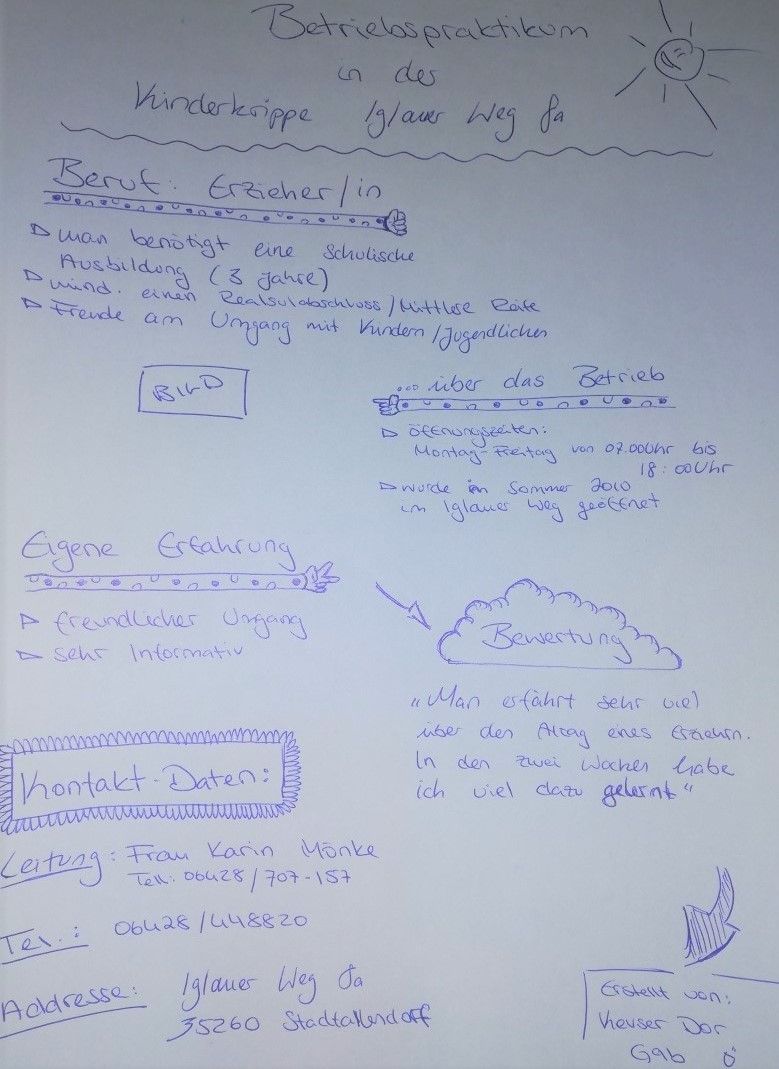 Betriebspraktikum
in der
Kinderkrippe Iglauer Weg 8a
Beruf: Erzieher/in
▷ man benötigt eine Schulische
Ausbildung (3 Jahre)
▷ mind. einen Realsulabschluss/Mittlere Reife
▷ Freude am Umgang mit Kindern/Jugendlichen
BILD
...über das Betrieb
▷ öffnungszeiten:
Montag-Freitag von 07.00Uhr bis
18:00Uhr
▷ wurde im Sommer 2010
im Iglauer Weg geöffnet
Eigene Erfahrung
▷ freundlicher Umgang
▷ sehr Informativ
Bewertung
„Man erfährt sehr viel
über den Alltag eines Erziehrn.
In den zwei Wochen habe
ich viel dazu gelernt“
Kontakt-Daten:
Leitung: Frau Karin Mönke
Tel.: 06428/707-157
Tel.: 06428/448820
Addresse: Iglauer Weg 8a
35260 Stadtallendorf
Erstellt von:
Dor
Gab